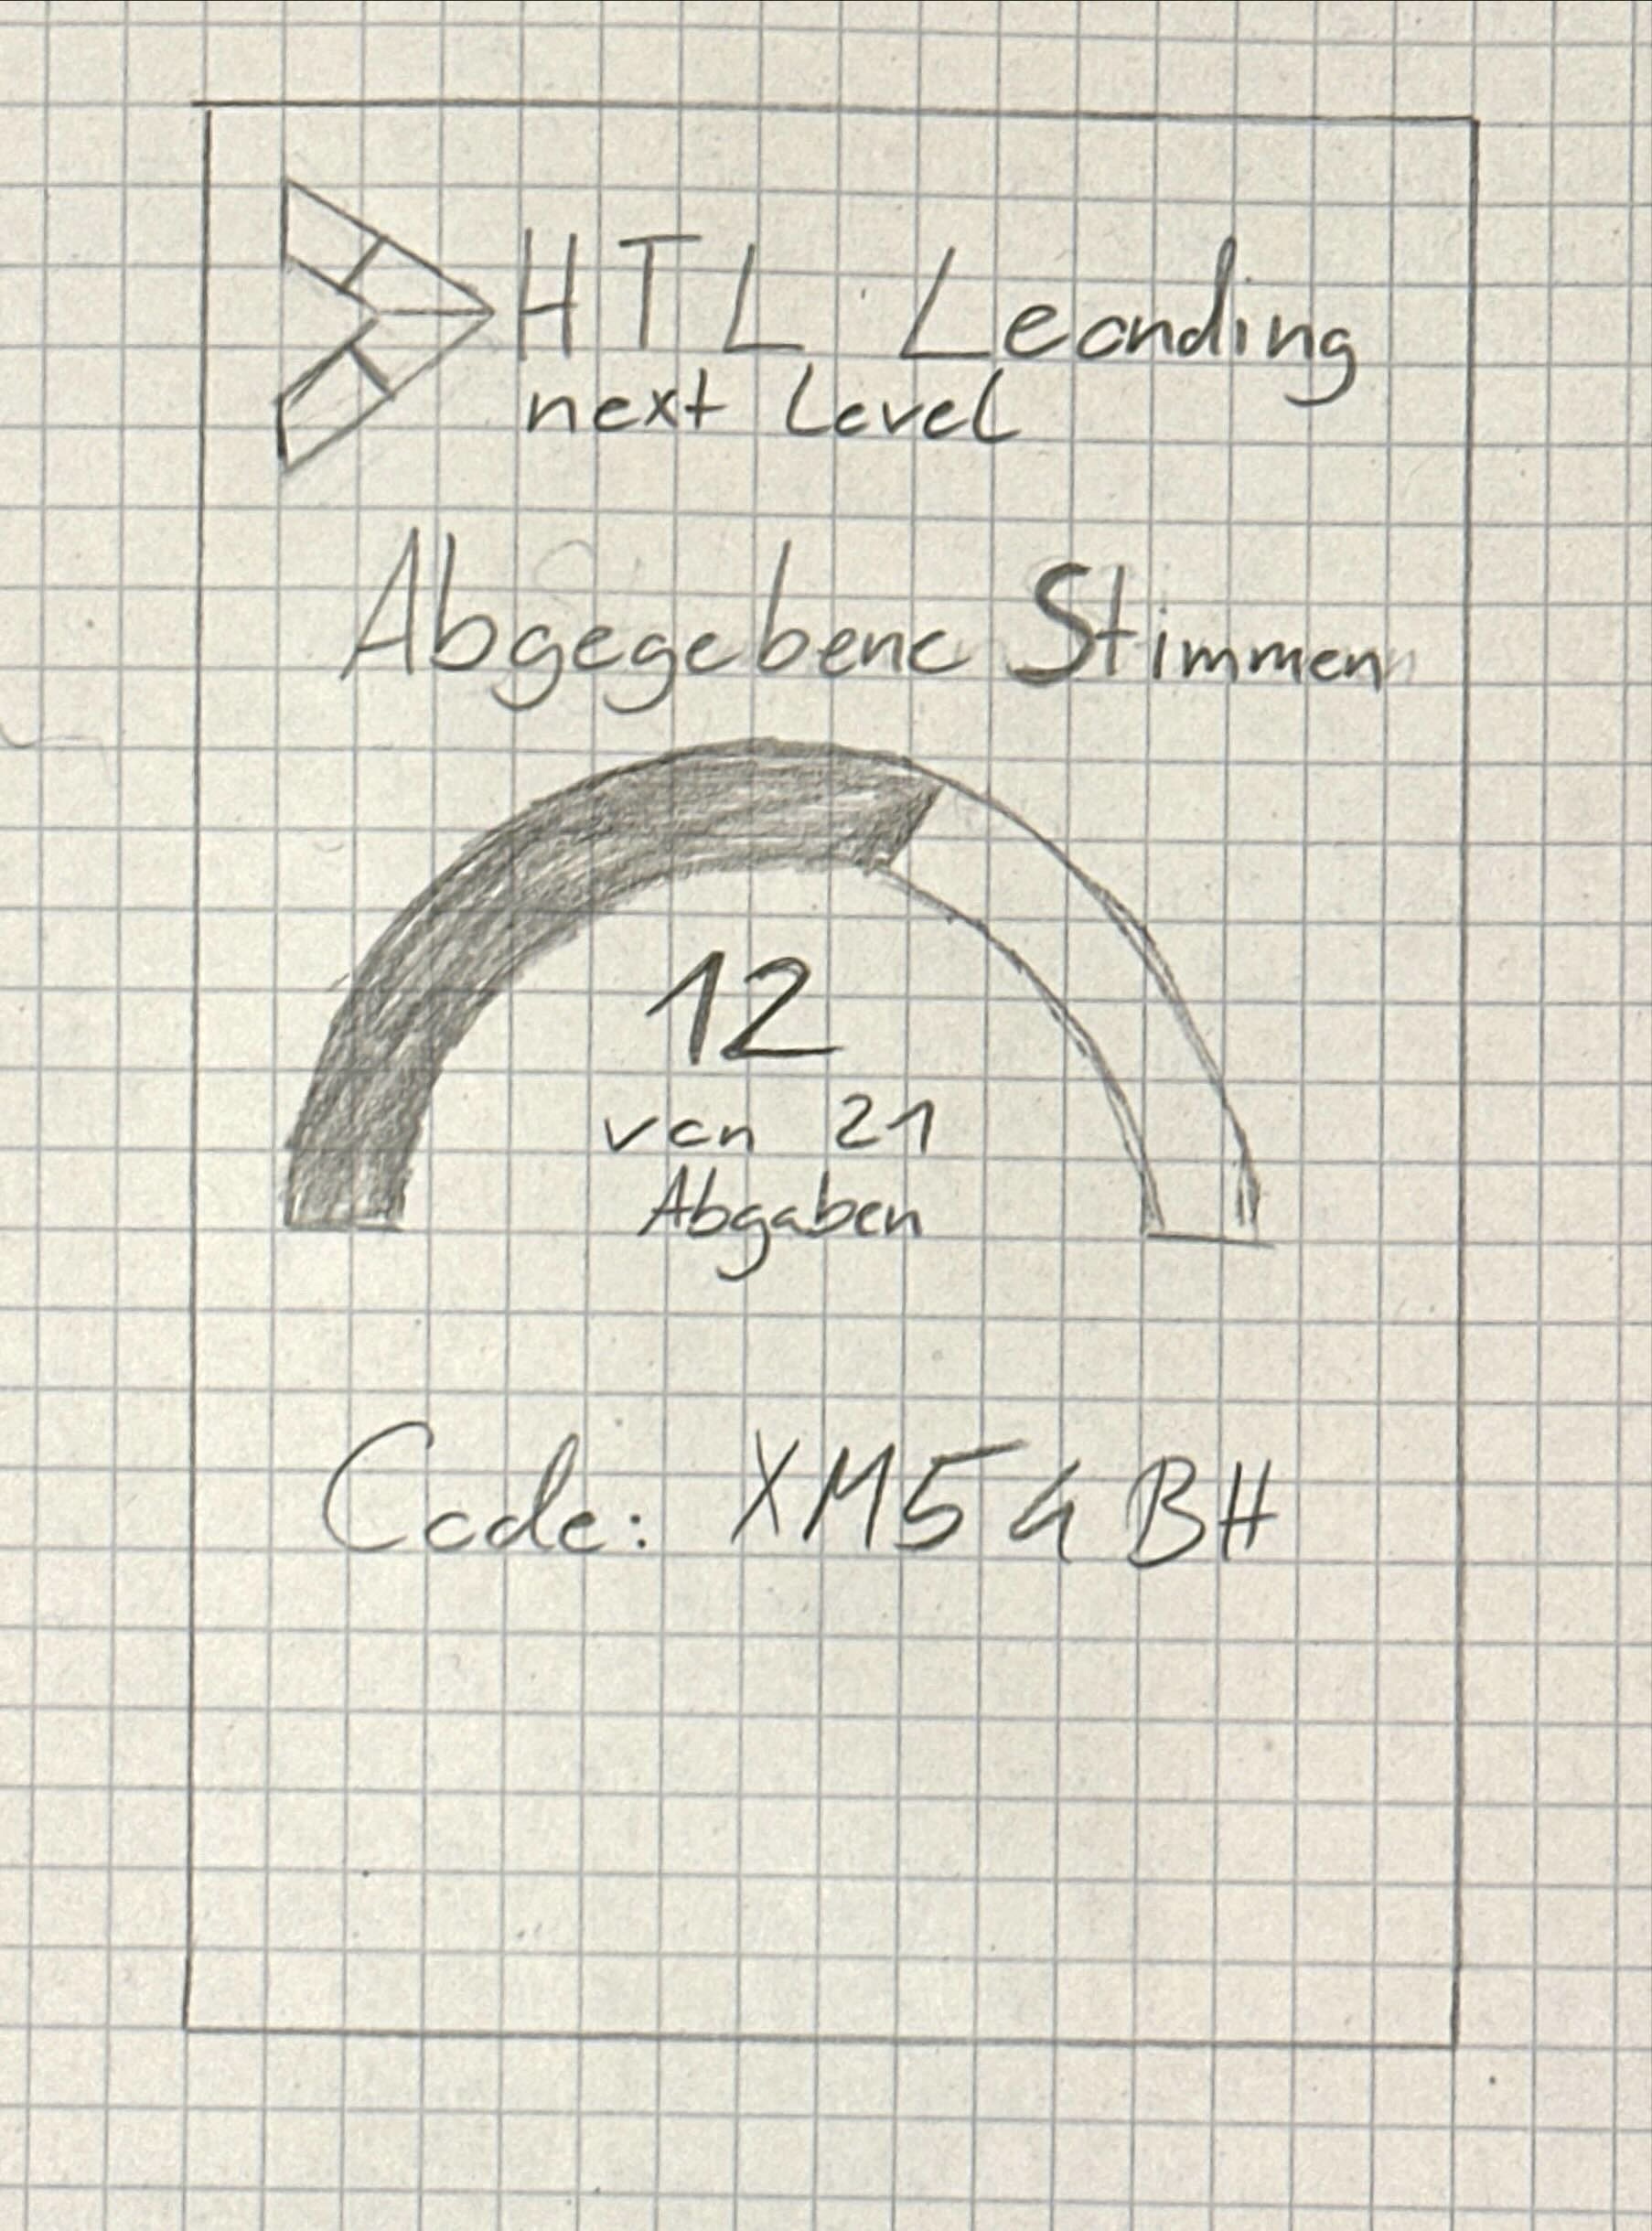 HTL Leonding
next Level
Abgegebene Stimmen
12
von 21
Abgaben
Code: XM54BH